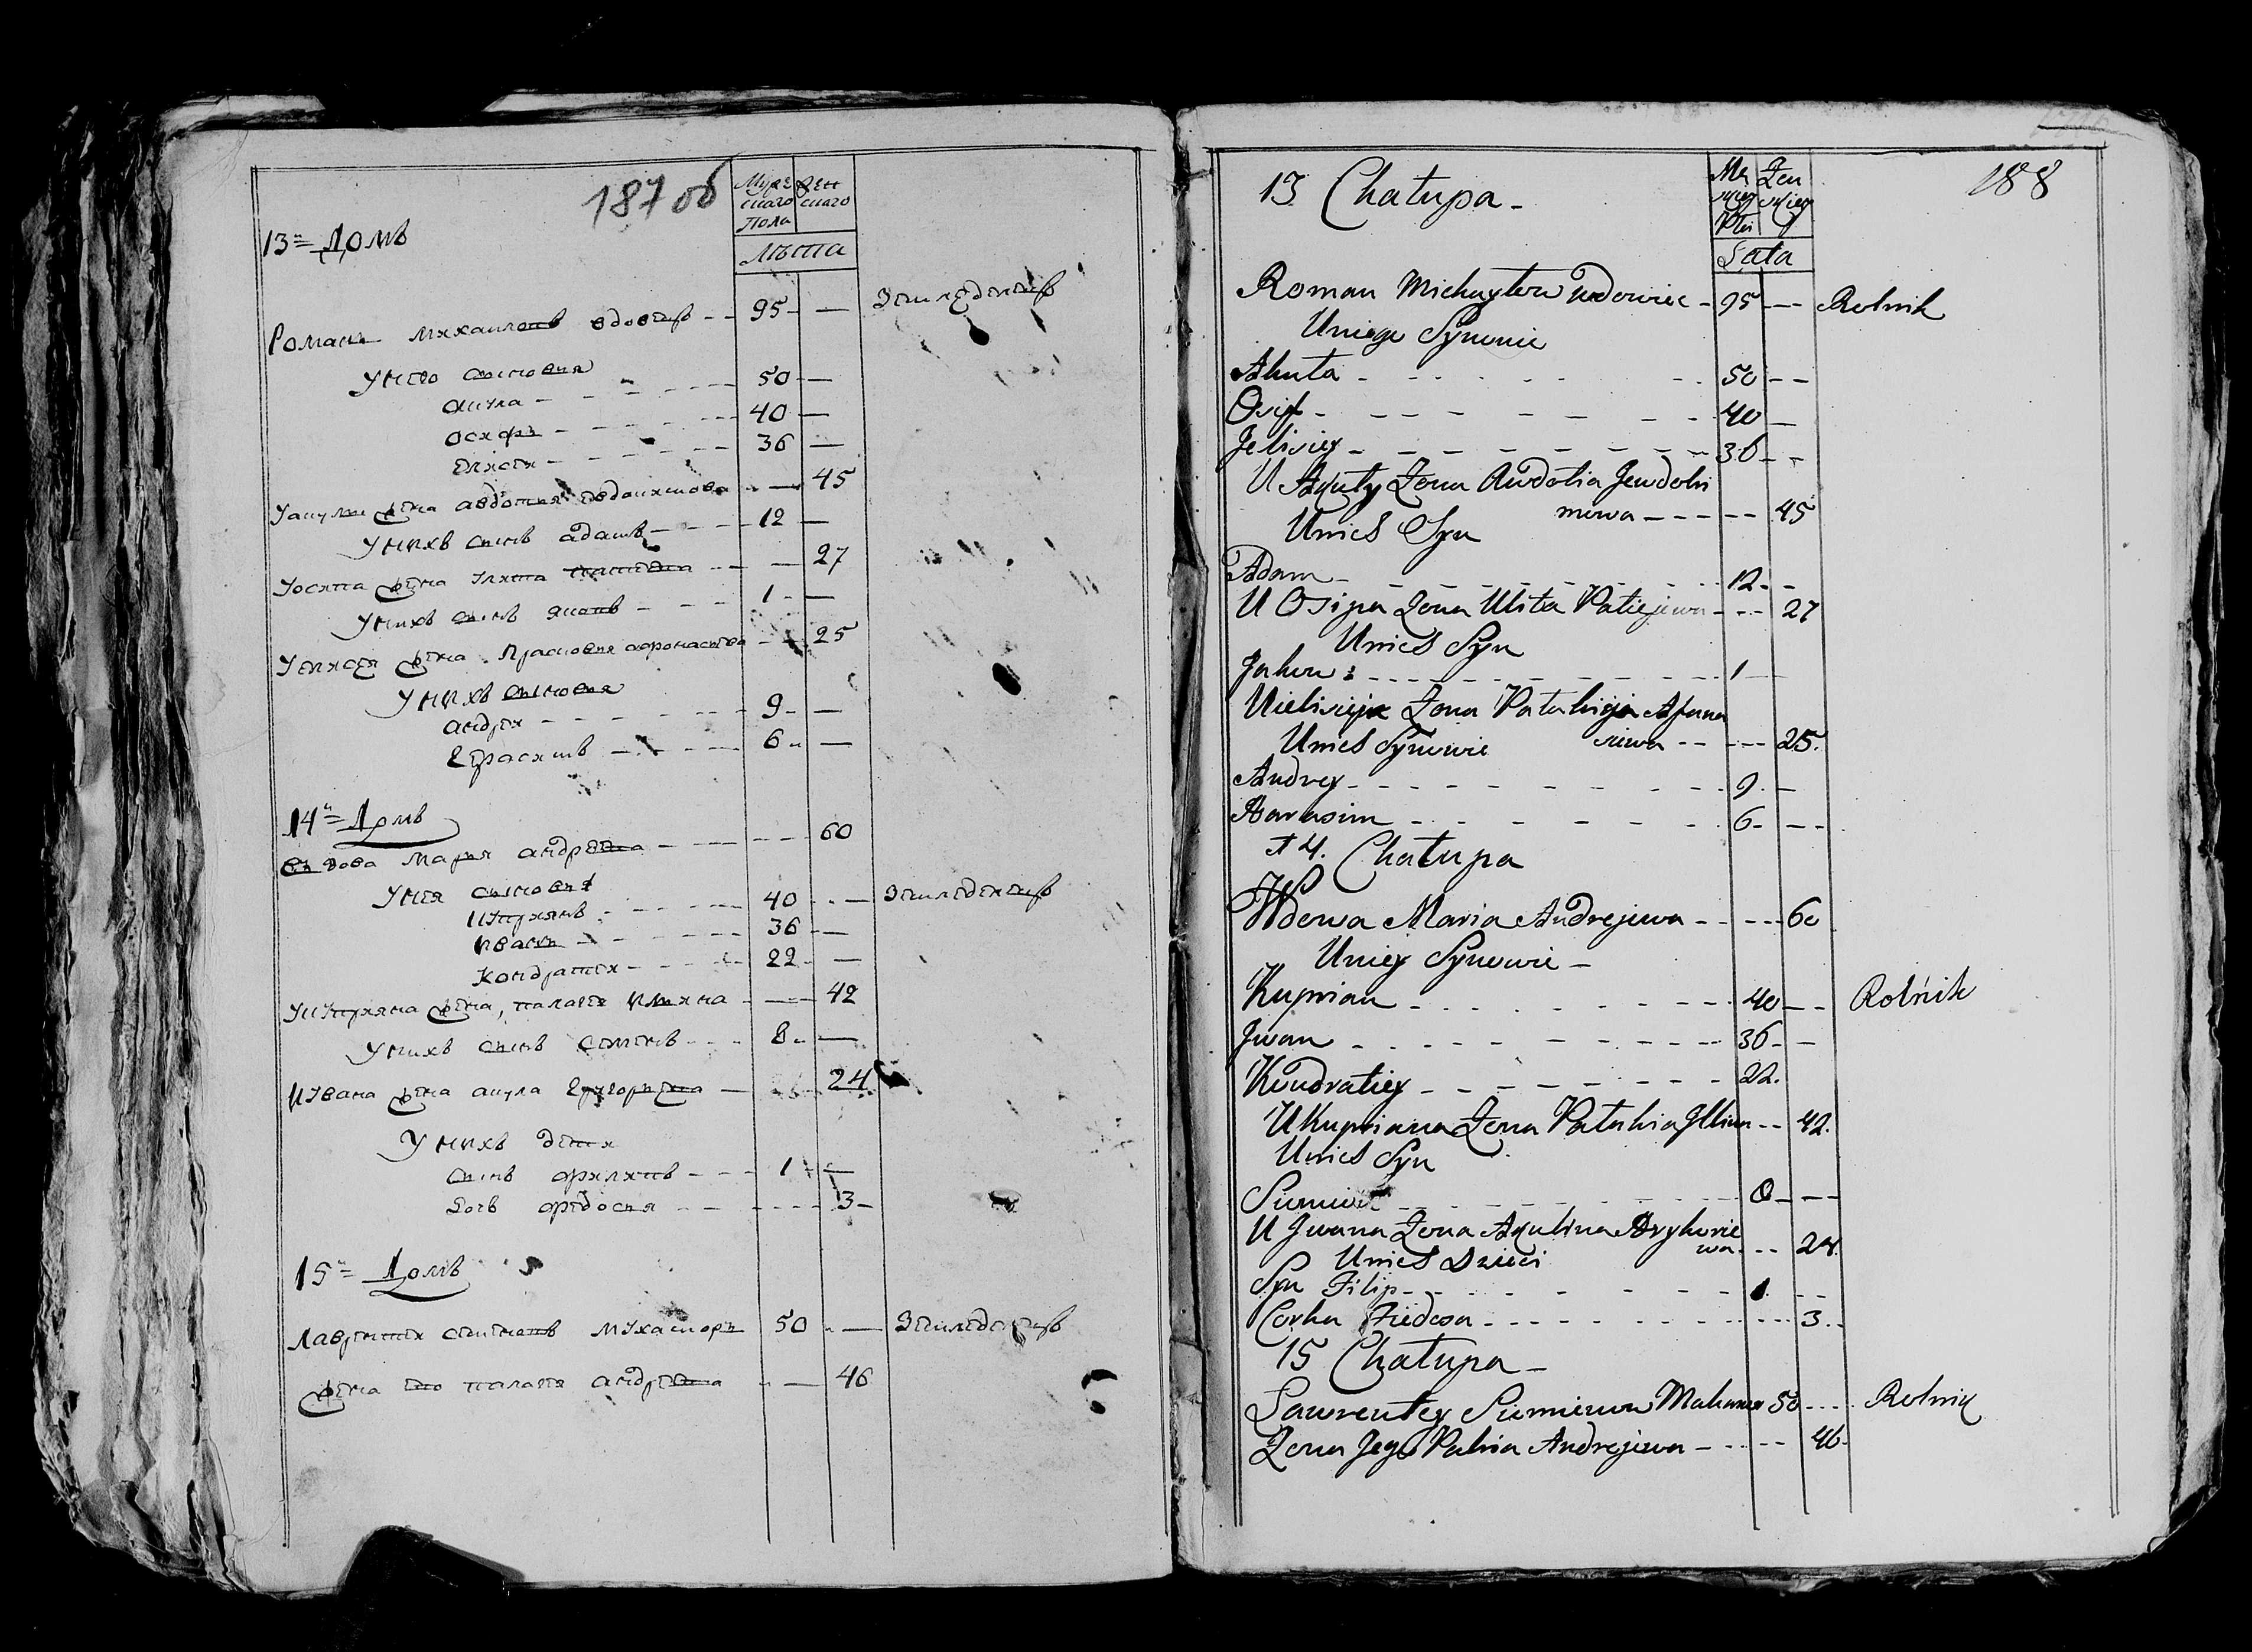 187 об
Мужескаго Пола
Женскаго
Лѣта
13 = Домъ
Романъ Михаиловъ вдовецъ - - 95 - — Земледелецъ
У него сыновя
Акула - 50 —
Осифъ - 40 —
Елисей - 36 —
У акулы жена авдотья евдокимова - — 45
У нихъ сынъ адамъ - 12 —
У осипа жена улита - — 27
У нихъ сынъ яковъ - 1 - —
У елисея жена Прасковя афонасева - — 25
У нихъ сыновя
андрей - 9 - —
Ерасимъ - 6 - —
14 = Домъ
Вдова Мария андреева - - - 60
У нея сыновя
Куприянъ - 40 - — Земледелецъ
Иванъ - 36 —
Кондратей - 22 - —
У Куприяна жена, палагея илина - — 42
У нихъ сынъ семенъ - 8 - —
У Ивана жена акула Григорьева — 24
У нихъ дети
сынъ филипъ - 1 - —
дочь федосья - - - 3 -
15 = Домъ
Лаврентей семеновъ 50 - — Земледелецъ
жена его палагея андреева - — 46
188
13 Chatupa -
Męskiey Płci
Zenskiey
Lata
Roman Michayłow wdowiec - 95 — Rolnik
Uniego Synowie
Akuta - 50 - -
Osip - 40 —
Jelisiey - 36 - -
U Akuty Zona Awdotia Jewdoki
mowa - - - - - 45
Unich Syn
Adam - 12 - -
U Osipa Zona Ulita Patiejewa - - - 27
Unich Syn
Jakow - 1 —
Uielisieja Zona Afana
siewa - - - - - 25.
Unich Synowie
Andrey - 9 - —
Harasim - 6 - - -
14. Chatupa
Wdowa Maria Andrejewa - - - - 60
Uniey Synowie -
Kuprian - 40 - - Rolnik
Jwan - 36 - -
Kondratiey - 22.
U Kupriana Zona Pałahia Jllina - - 42.
Unich Syn
Siemien - 8 - - -
U Jwana Zona Akulina Hryhorie
wa - - - 24.
Unich Dzieci
Syn Filip - 1 - -
Corka Fiedosia - - - 3 - -
15 Chatupa -
Lawrentey Siemienow 50 - - - Rolnik
Zona Jego Andrejewa - - - - 46 -